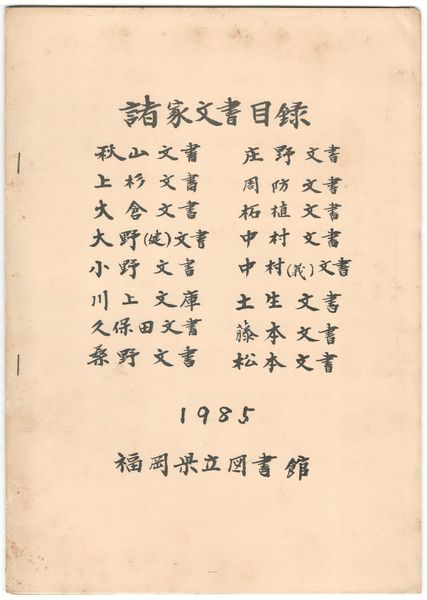 諸家文書目録
秋山文書
上杉文書
大倉文書
大野(健)文書
小野文書
川上文庫
久保田文書
桑野文書
庄野文書
周防文書
柘植文書
中村文書
中村(義)文書
土生文書
藤本文書
松本文書
1985
福岡県立図書館